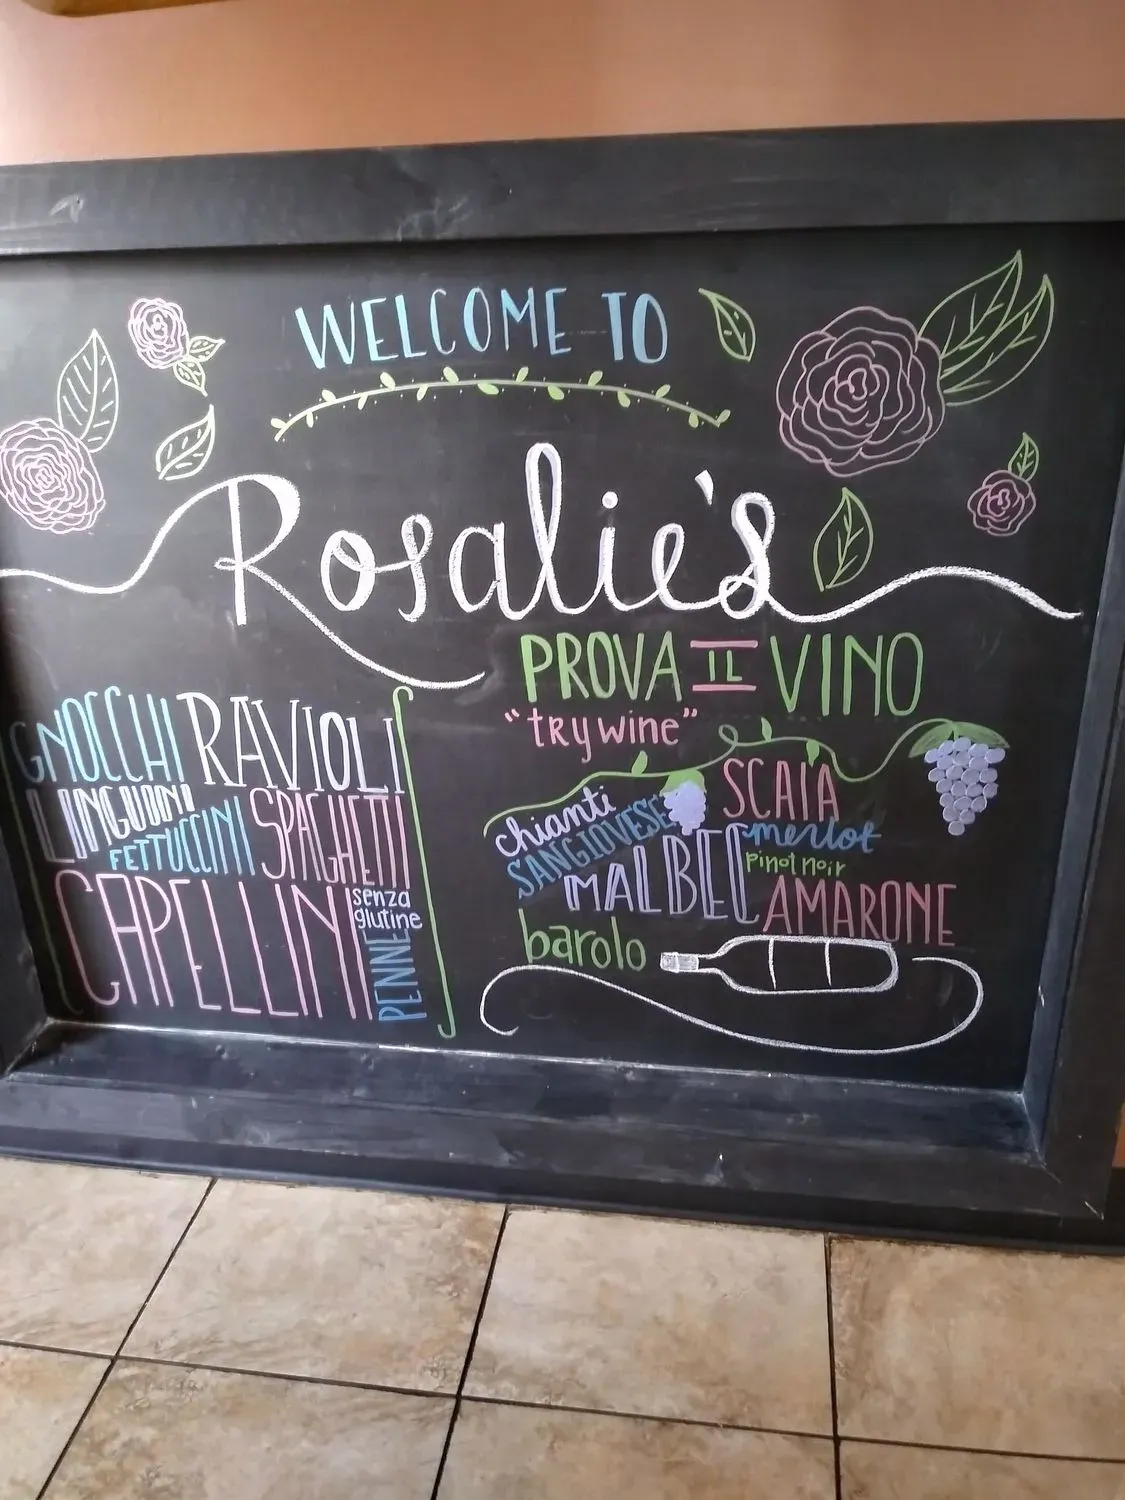 WELCOME TO
Rosalie's
GNOCCHI RAVIOLI
LINGUINI
FETTUCCINI SPAGHETTI
CAPELLINI
senza
glutine
PENNE
PROVA IL VINO
"try wine"
chianti
SANGIOVESE
SCAIA
MALBEC
merlot
pinot noir
AMARONE
barolo